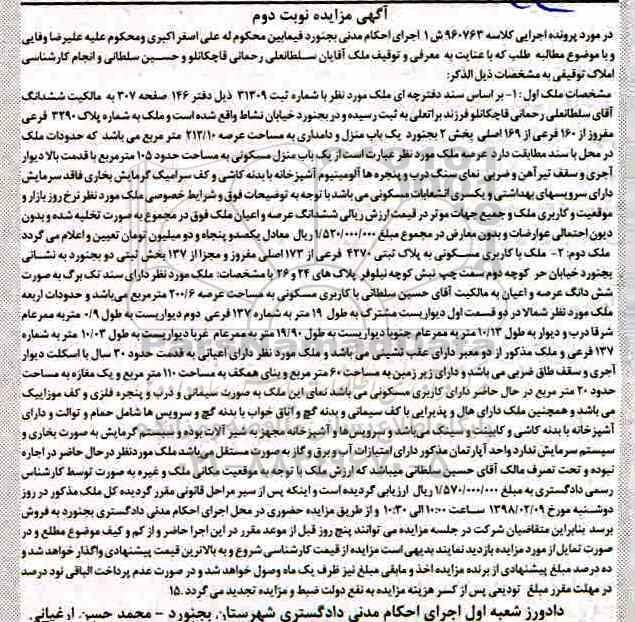 آگهی مزایده نوبت دوم
در مورد پرونده اجرایی کلاسه ۹۶۰۷۶۳ ش ۱ اجرای احکام مدنی بجنورد فیمابین محکوم له علی اصغر اکبری ومحکوم علیه علیرضا وفایی
و با موضوع مطالبه طلب که با عنایت به معرفی و توقیف ملک آقایان سلطانعلی رحمانی قاچکانلو و حسین سلطانی و انجام کارشناسی
املاک توقیفی به مشخصات ذیل الذکر:
مشخصات ملک اول: ۱- بر اساس سند دفترچه ای ملک مورد نظر با شماره ثبت ۳۱۳۰۹ ذیل دفتر ۱۴۶ صفحه ۳۰۷ به مالکیت ششدانگ
آقای سلطانعلی رحمانی قاچکانلو فرزند براتعلی به ثبت رسیده و در بجنورد خیابان نشاط واقع شده است و ملک به شماره پلاک ۳۲۹۰ فرعی
مفروز از ۱۶۰ فرعی از ۱۶۹ اصلی بخش ۲ بجنورد یک باب منزل و دامداری به مساحت عرصه ۲۱۲/۱۰ متر مربع می باشد که حدودات ملک
در محل با سند مطابقت دارد عرصه ملک مورد نظر عبارت است از یک باب منزل مسکونی به مساحت حدود ۱۰۵ مترمربع با قدمت بالا دیوار
آجری و سقف تیر آهن و ضربی نمای سنگ درب و پنجره ها آلومینیوم آشپزخانه با بدنه کاشی و کف سرامیک گرمایش بخاری فاقد سرمایش
دارای سرویسهای بهداشتی و یکسری انشعابات مسکونی می باشد با توجه به توضیحات فوق و شرایط خصوصی ملک مورد نظر نرخ روز بازار و
موقعیت و کاربری ملک و جمیع جهات موثر در قیمت ارزش ریالی ششدانگ عرصه و اعیان ملک فوق در مجموع به صورت تخلیه شده و بدون
دیون احتمالی عوارضات و بدون معارض در مجموع مبلغ ۱/۵۲۰/۰۰۰/۰۰۰ ریال معادل یکصدو پنجاه و دو میلیون تومان تعیین و اعلام می گردد
ملک دوم: ۲- ملک با کاربری مسکونی به پلاک ثبتی ۴۲۷۰ فرعی از ۱۷۳ اصلی مفروز و مجزا از ۱۳۷ بخش ثبتی دو بجنورد به نشانی
بجنورد خیابان حر کوچه دوم سمت چپ نبش کوچه نیلوفر پلاک های ۲۴ و ۲۶ با مشخصات: ملک مورد نظر دارای سند تک برگ به صورت
شش دانگ عرصه و اعیان به مالکیت آقای حسین سلطانی با کاربری مسکونی به مساحت عرصه ۲۰۰/۶ متر مربع می‌باشد و حدودات اربعه
ملک مورد نظر شمالا در دو قسمت اول دیواریست مشترک به طول ۱۹ متر به شماره ۱۳۷ فرعی دوم دیواریست به طول ۰/۹ متر به ممرعام
شرقا درب و دیوار به طول ۱۰/۱۳ متر به ممر عام جنوبا دیواریست به طول ۱۹/۹۰ متر به ممر عام غربا دیواریست به طول ۱۰/۰۳ متر به شماره
۱۳۷ فرعی و ملک مذکور از دو معبر دارای عقب نشینی می باشد و ملک مورد نظر دارای اعیانی به قدمت حدود ۳۰ سال با اسکلت دیوار
آجری و سقف طاق ضربی می باشد و دارای زیر زمین به مساحت ۶۰ متر مربع و بنای همکف به مساحت ۱۱۰ متر مربع و یک مغازه به مساحت
حدود ۲۰ متر مربع در حال حاضر دارای کاربری مسکونی می باشد نمای این ملک به صورت سیمانی و درب و پنجره فلزی و کف موزاییک
می باشد و همچنین ملک دارای هال و پذیرایی با کف سیمانی و بدنه گچ و اتاق خواب با بدنه گچ و سرویس ها شامل حمام و توالت و دارای
آشپزخانه با بدنه کاشی و کابینت و سینک می‌باشد و سرویس‌ها و آشپزخانه مجهز به شیر آلات بوده و سیستم گرمایش به صورت بخاری و
سیستم سرمایش ندارد واحد آپارتمان مذکور دارای امتیازات آب و برق و گاز به صورت مستقل می‌باشد ملک موردنظر در حال حاضر در اجاره
نبوده و تحت تصرف مالک آقای حسین سلطانی میباشد که ارزش ملک با توجه به موقعیت مکانی ملک و غیره به صورت توسط کارشناس
رسمی دادگستری به مبلغ ۱/۵۷۰/۰۰۰/۰۰۰ ریال ارزیابی گردیده است و اینکه پس از سیر مراحل قانونی مقرر گردیده کل ملک مذکور در روز
دوشنبه مورخ ۱۳۹۸/۰۲/۰۹ ساعت ۱۰:۰۰ الی ۱۰:۳۰ و از طریق مزایده حضوری در محل اجرای احکام مدنی دادگستری بجنورد به فروش
برسد بنابراین متقاضیان شرکت در جلسه مزایده می توانند پنج روز قبل از موعد مقرر در این اجرا حاضر و از کم و کیف موضوع مطلع و در
صورت تمایل از مورد مزایده بازدید نمایند بدیهی است مزایده از قیمت کارشناسی شروع و به بالاترین قیمت پیشنهادی واگذار خواهد شد و
ده درصد مبلغ پیشنهادی از برنده مزایده اخذ و مابقی مبلغ نیز ظرف یک ماه وصول خواهد شد و در صورت عدم پرداخت الباقی نود درصد
در مهلت مقرر مبلغ تودیعی پس از کسر هزینه مزایده به نفع دولت ضبط و مزایده تجدید می گردد ۱۵۰
دادورز شعبه اول اجرای احکام مدنی دادگستری شهرستان بجنورد - محمد حسن ارغیانی